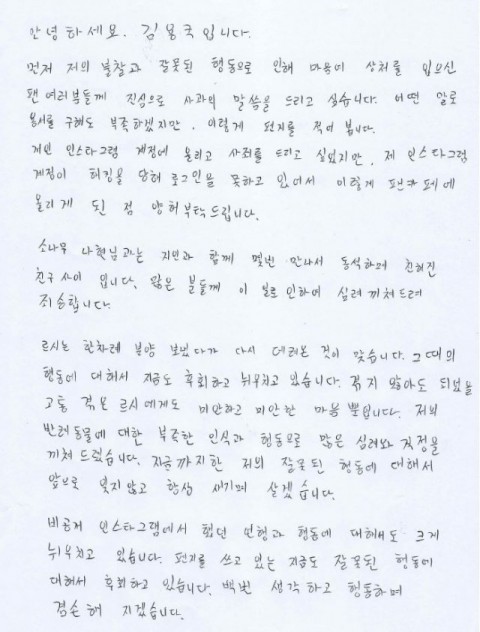 안녕하세요. 김용국입니다.
먼저 저의 불찰과 잘못된 행동으로 인해 마음에 상처를 입으신
팬 여러분들께 진심으로 사과의 말씀을 드리고 싶습니다. 어떤 말로
용서를 구해도 부족하겠지만, 이렇게 편지를 적어 봅니다.
개인 인스타그램 계정에 올리고 사죄를 드리고 싶었지만, 제 인스타그램
계정이 해킹을 당해 로그인을 못하고 있어서 이렇게 팬카페에
올리게 된 점 양해 부탁드립니다.
소나무 나현님과는 지인과 함께 몇번 만나서 동석하며 친해진
친구 사이 입니다. 많은 분들께 이 일로 인하여 심려 끼쳐드려
죄송합니다.
르시는 한차례 분양 보냈다가 다시 데려온 것이 맞습니다. 그때의
행동에 대해서 지금도 후회하고 뉘우치고 있습니다. 겪지 않아도 되었을
고통 겪은 르시에게도 미안하고 미안한 마음 뿐입니다. 저의
반려동물에 대한 부족한 인식과 행동으로 많은 심려와 걱정을
끼쳐 드렸습니다. 지금까지한 저의 잘못된 행동에 대해서
앞으로 잊지않고 항상 새기며 살겠습니다.
비공개 인스타그램에서 했던 언행과 행동에 대해서도 크게
뉘우치고 있습니다. 편지를 쓰고 있는 지금도 잘못된 행동에
대해서 후회하고 있습니다. 백번 생각하고 행동하며
겸손해 지겠습니다.